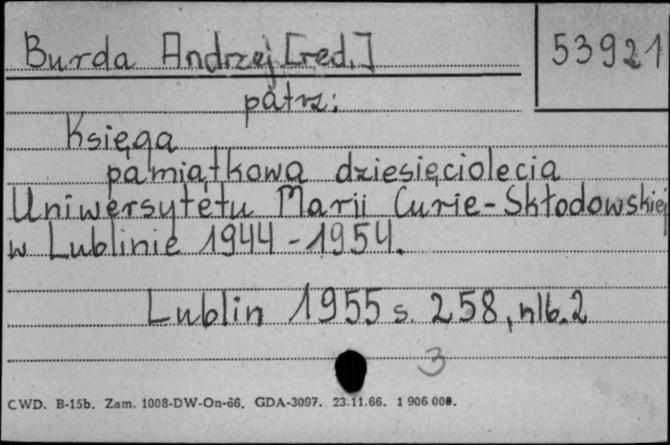 Burda Andrzej [red.]
53921
patrz:
Księga
pamiątkowa dziesięciolecia
Uniwersytetu Marii Curie-Skłodowskiej
w Lublinie 1944-1954.
Lublin 1955 s. 258, nlb. 2
3
CWD. B-15b. Zam. 1008-DW-On-66. GDA-3097. 23.11.66. 1 906 000.